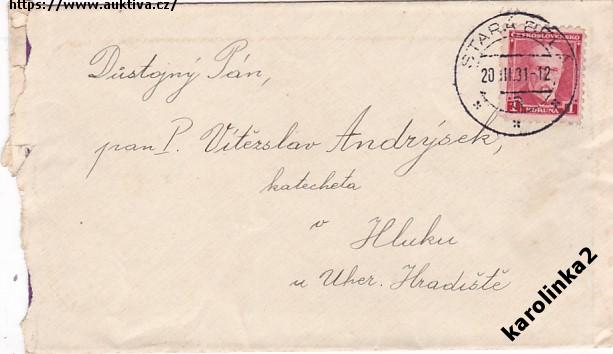 https://www.auktiva.cz/
STARÁ BĚLÁ
20 III.31-12
ČESKOSLOVENSKO
1 KORUNA 1
Důstojný Pán,
pan P. Vítězslav Andrýsek,
katecheta
v
Hluku
u Uher. Hradiště
karolinka2